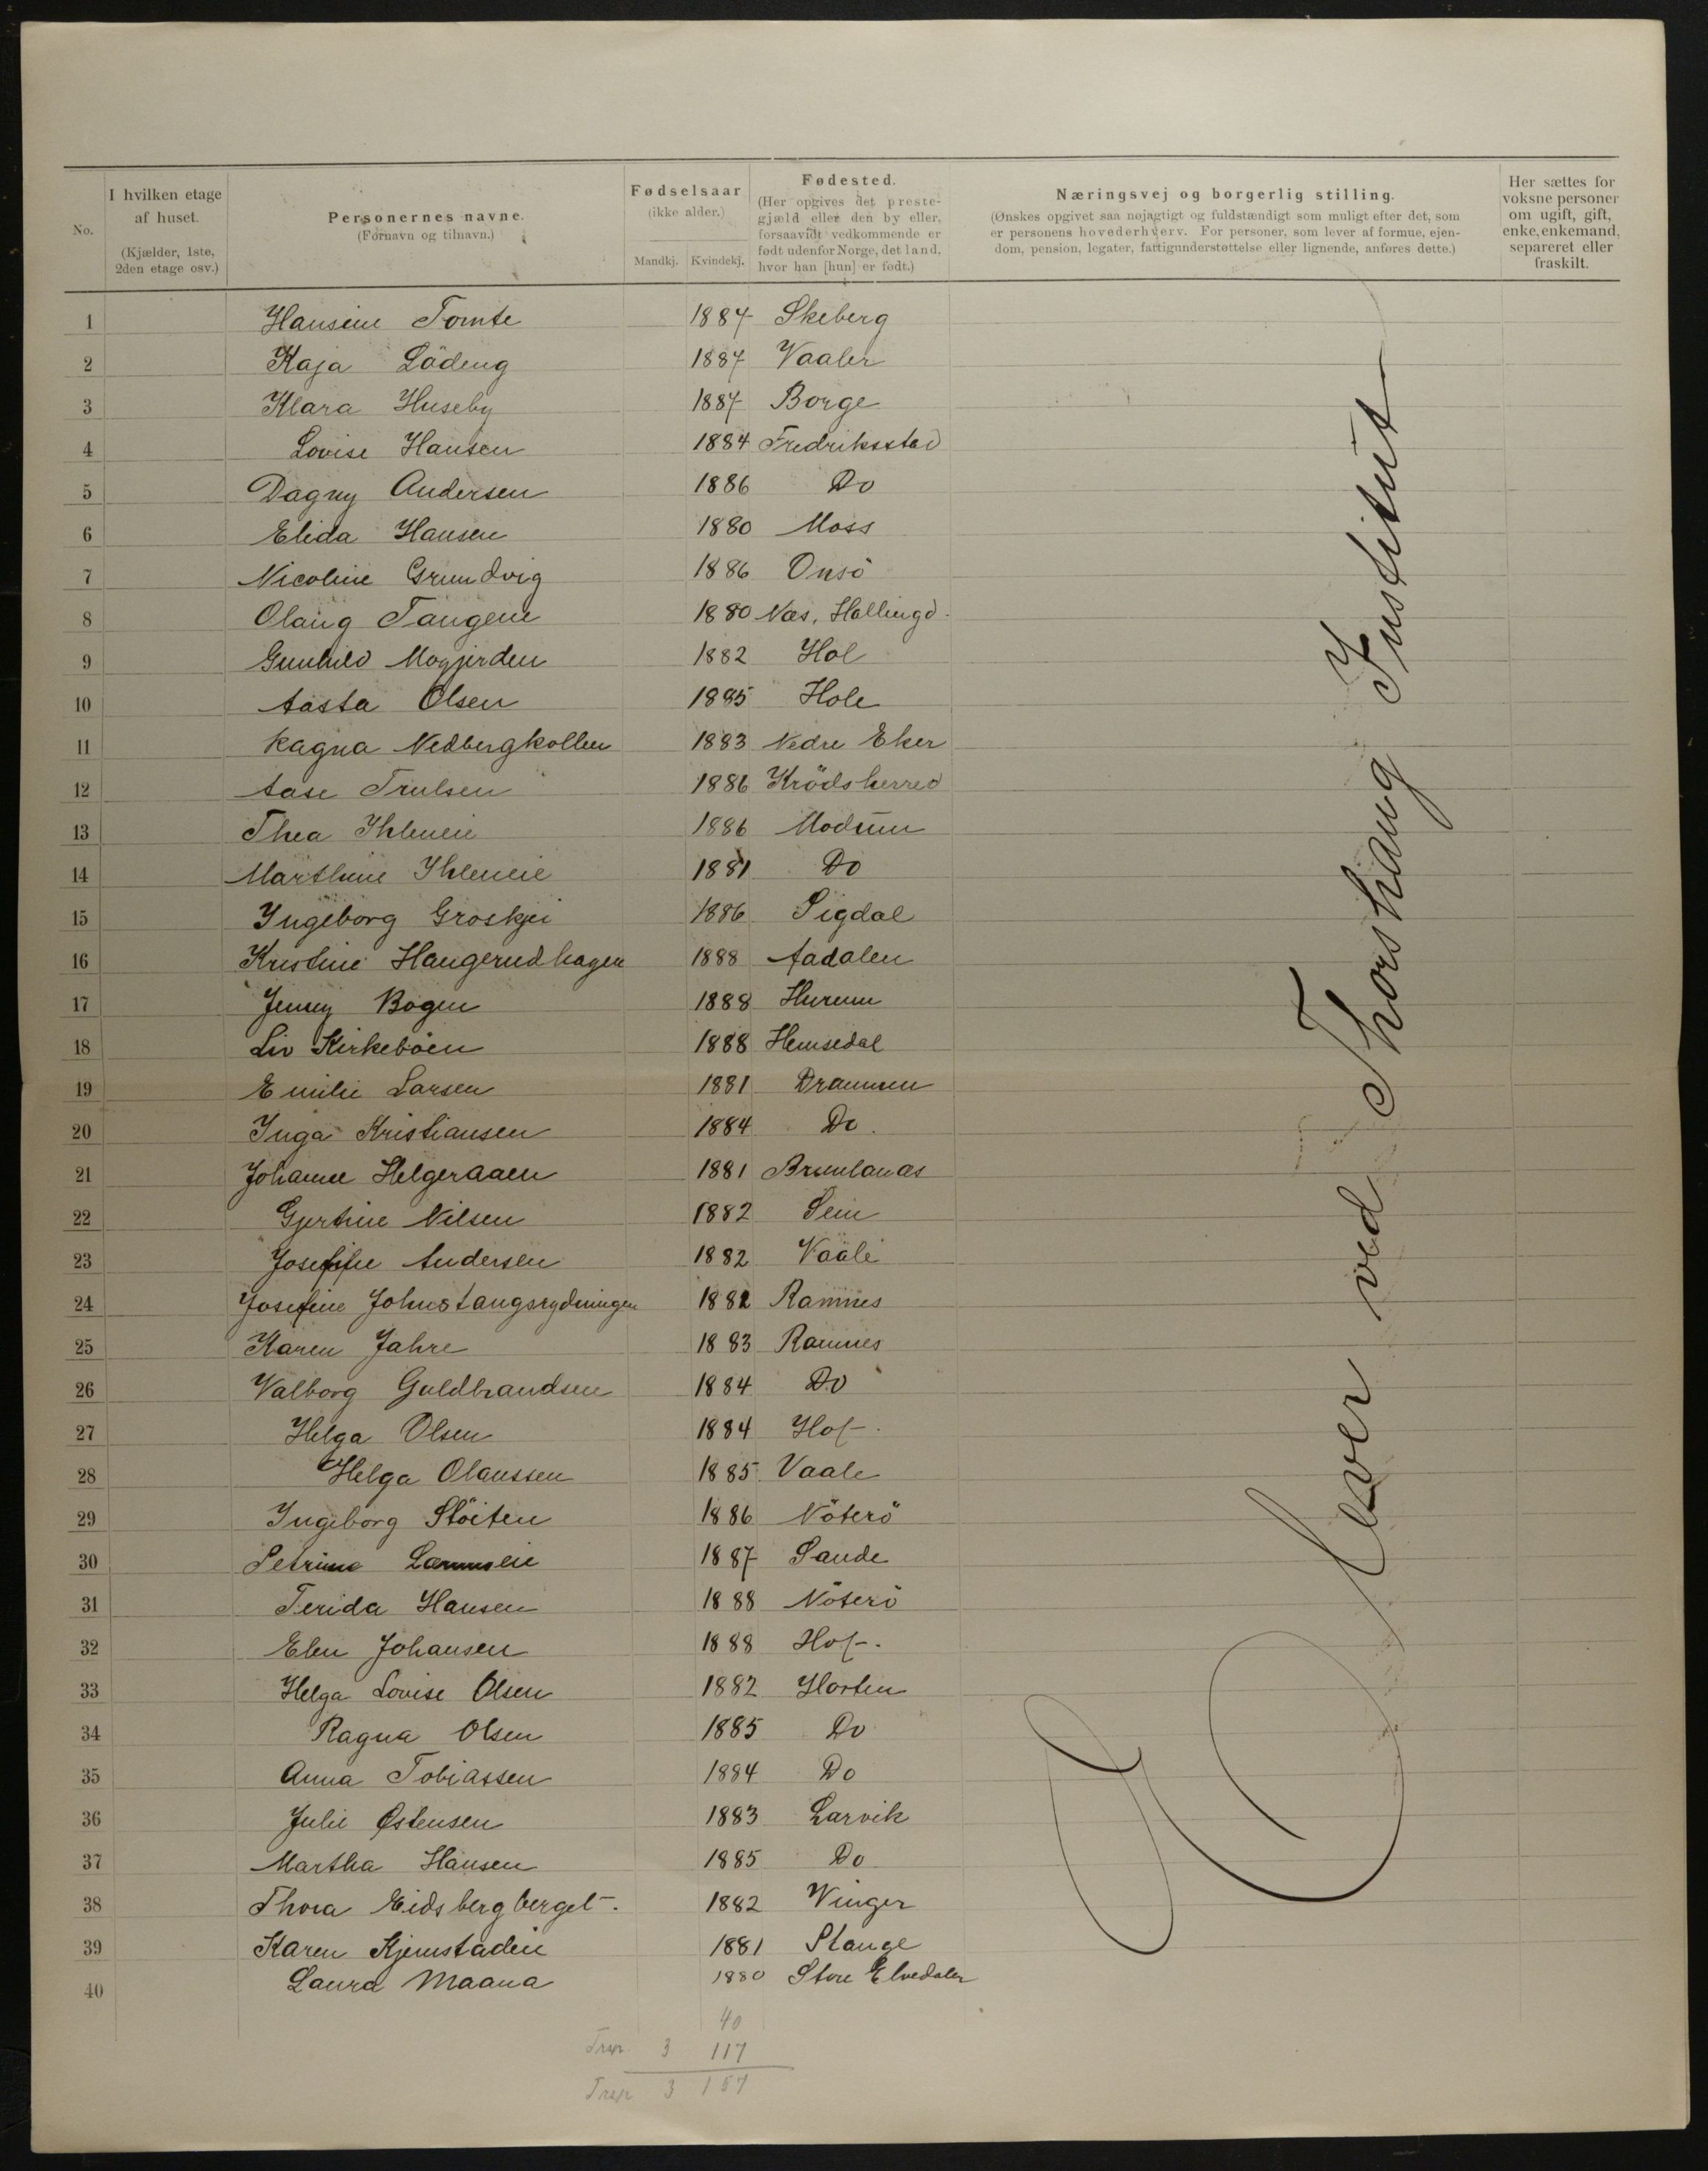 No.
I hvilken etage af huset.
(Kjælder, 1ste, 2den etage osv.)
Personernes navne.
(Fornavn og tilnavn.)
Fødselsaar
(ikke alder.)
Mandkj. Kvindekj.
Fødested.
(Her opgives det preste-
gjæld eller den by eller,
forsaavidt vedkommende er
født udenfor Norge, det land,
hvor han [hun] er født.)
Næringsvej og borgerlig stilling.
(Ønskes opgivet saa nøjagtigt og fuldstændigt som muligt efter det, som
er personens hovederhverv. For personer, som lever af formue, ejen-
dom, pension, legater, fattigunderstøttelse eller lignende, anføres dette.)
Her sættes for
voksne personer
om ugift, gift,
enke, enkemand,
separeret eller
fraskilt.
1 Hansine Tomte 1887 Skeberg
2 Kaja Lödeng 1887 Vaaler
3 Klara Huseby 1887 Borge
4 Lovise Hansen 1884 Fredriksstad
5 Dagny Andersen 1886 Do
6 Elida Hansen 1880 Moss
7 Nicoline Grundvig 1886 Onsö
8 Olaug Tangene 1880 Næs, Hallingd.
9 Gunhild Mogjerden 1882 Hol
10 Aasta Olsen 1885 Hole
11 Ragna Nedbergkollen 1883 Nedre Eker
12 Aase Trulsen 1886 Krödsherred
13 Thea Ihleneie 1886 Modum
14 Marthine Ihleneie 1881 Do
15 Ingeborg Groskjei 1886 Sigdal
16 Kristine Haugerudhagen 1888 Aadalen
17 Jenny Bogen 1888 Hurum
18 Liv Kirkeböen 1888 Hemsedal
19 Emilie Larsen 1881 Drammen
20 Inga Kristiansen 1884 Do.
21 Johanne Helgeraaen 1881 Brunlanæs
22 Gjertine Nilsen 1882 Sem
23 Josefine Andersen 1882 Vaale
24 Josefine Johnstangsrydningen 1882 Ramnes
25 Karen Jahre 1883 Ramnes
26 Valborg Guldbrandsen 1884 Do
27 Helga Olsen 1884 Hof.
28 Helga Olaussen 1885 Vaale
29 Ingeborg Stöiten 1886 Nöterö
30 Petrine 1887 Sande
31 Terida Hansen 1888 Nöterö
32 Elen Johansen 1888 Hof.
33 Helga Lovise Olsen 1882 Horten
34 Ragna Olsen 1885 Do
35 Anna Tobiassen 1884 Do
36 Julie Østensen 1883 Larvik
37 Martha Hansen 1885 Do
38 Thora Eidsbergberget. 1882 Vinger
39 Karen Kjemstadeie 1881 Stange
40 Laura Maana 1880 Store Elvedalen
Elever ved Thorshaug Institut
40
Trsp. 3 117
Trsp 3 157